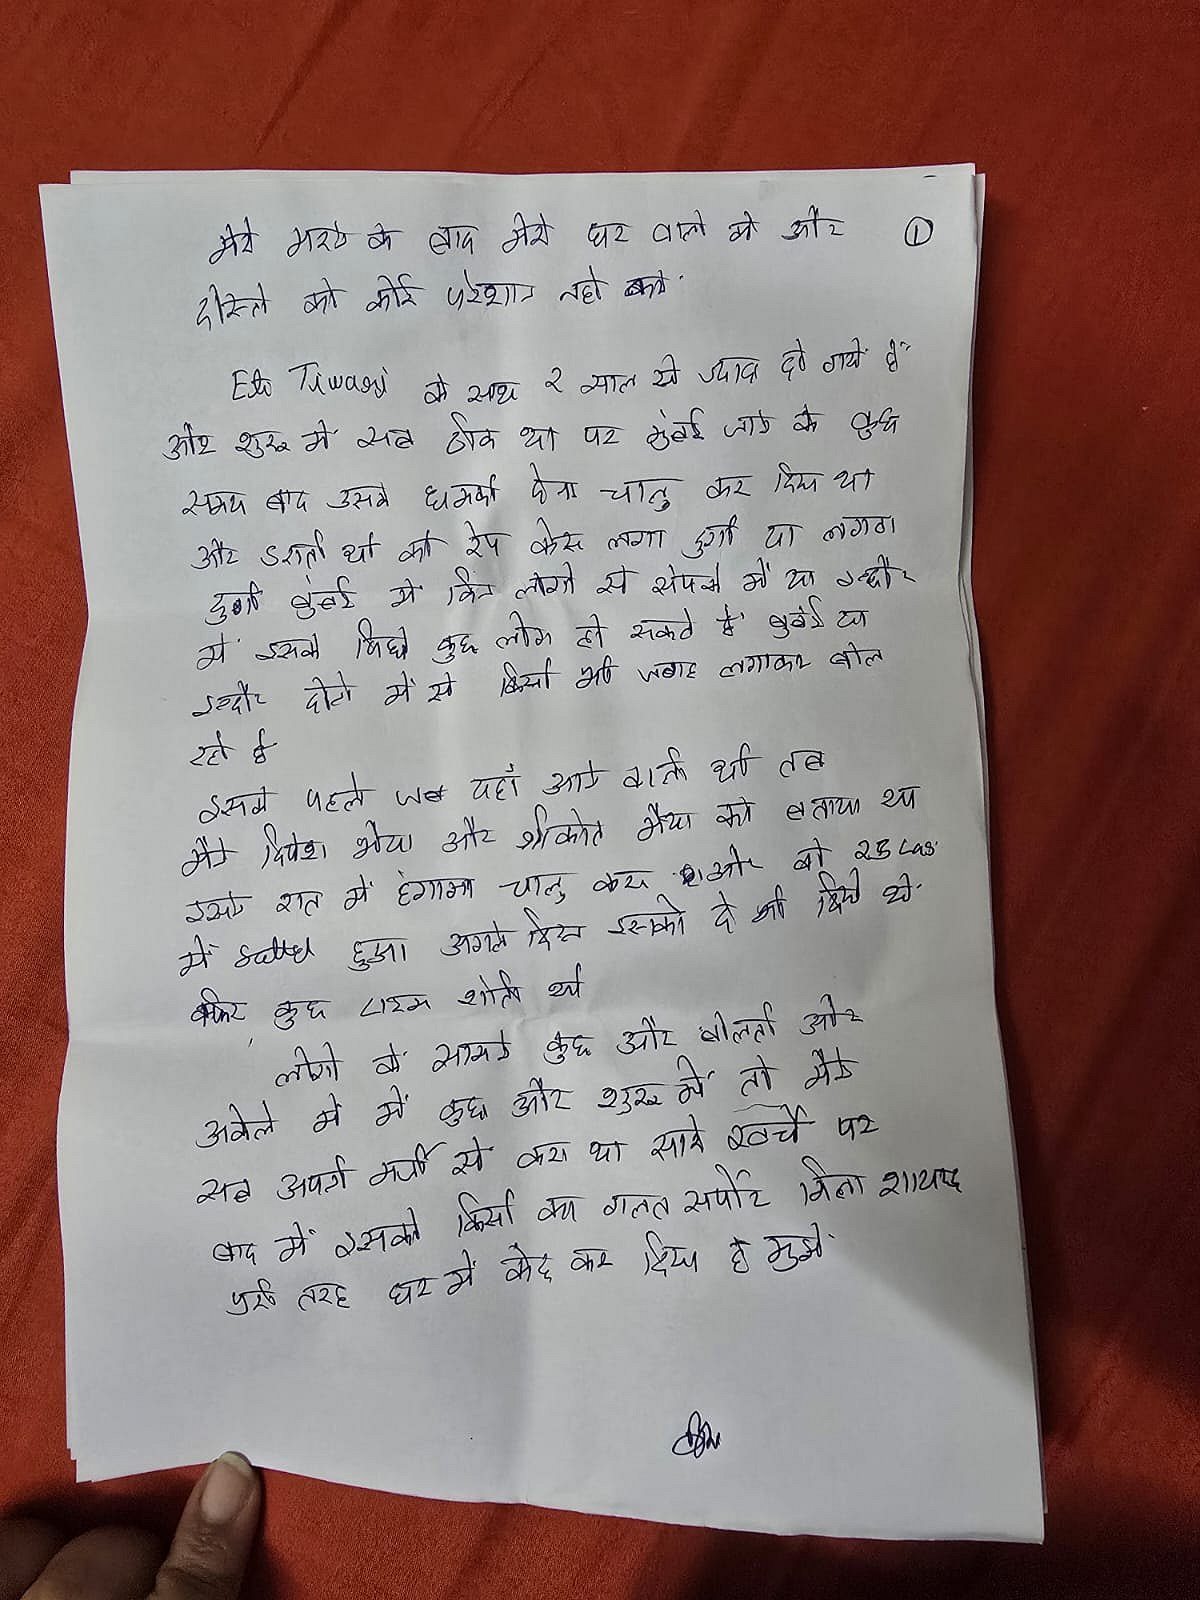 मेरे मरने के बाद मेरे घर वाले को और ①
दोस्तो को कोई परेशान नही करे.
Tiwari के साथ 2 साल से ज्यादा हो गये हैं
और शुरू में सब ठीक था पर मुंबई जाने के कुछ
समय बाद उसने धमकी देना चालु कर दिया था
और डराती थी की रेप केस लगा दुगी या लगवा
दुगी मुंबई में किन लोगो से संपर्क में या इन्दौर
में इसके पिछे कुछ लोग हो सकते है मुंबई या
इन्दौर दोनो में से किसी भी जगह लगाकर बोल
रही है
इससे पहले जब यहाँ आने वाली थी तब
मैने दिपेश भैया और श्रीकांत भैया को बताया था
इसने रात में हंगामा चालु करा और वो 25 Lac
में settel हुआ अगले दिन इसको दे भी दिये थे.
फिर कुछ टाइम शांती थी
लोगो के सामने कुछ और बोलती और
अकेले में में कुछ और शुरू में तो मैने
सब अपनी मर्जी से करा था सारे खर्चे पर
बाद में इसको किसी का गलत सर्पोट मिला शायद
पुरी तरह घर में केद कर दिया है मुझे.